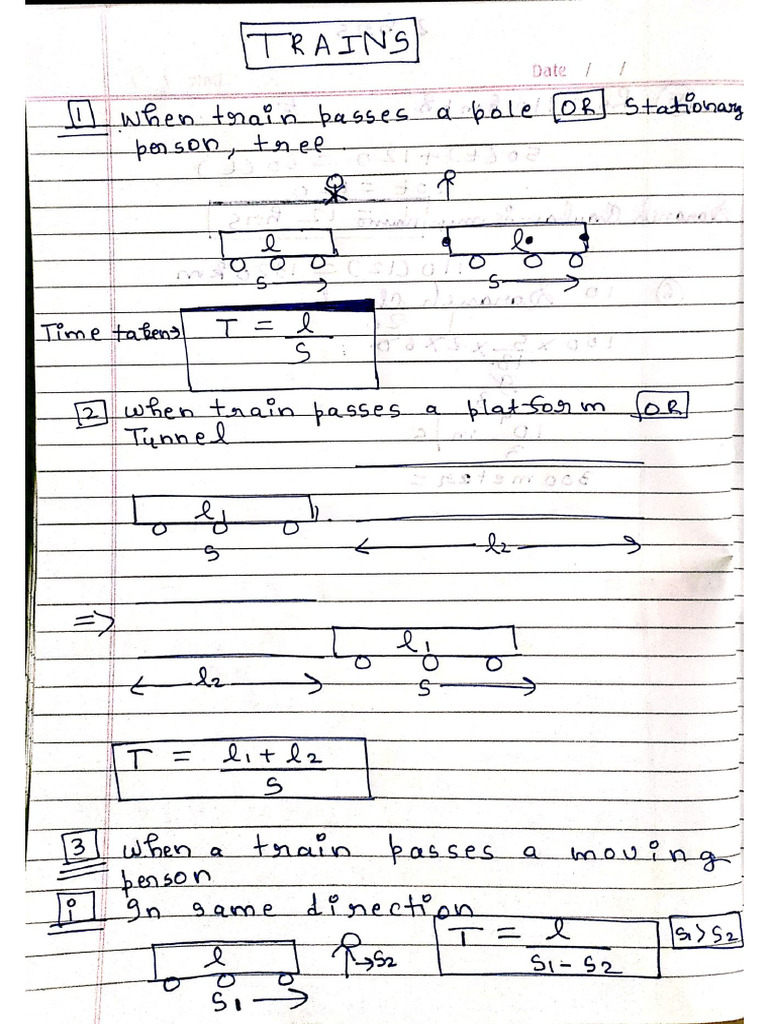 TRAINS
Date / /
1 When train passes a pole OR Stationary
person, tree.
l l
S → S →
Time taken→ T = l/S
2 When train passes a platform OR
Tunnel
l1
S l2
⇒
l1
l2 S →
T = l1 + l2/S
3 When a train passes a moving
person
i In same direction
l →S2 T = l/S1 - S2 S1 > S2
S1 →